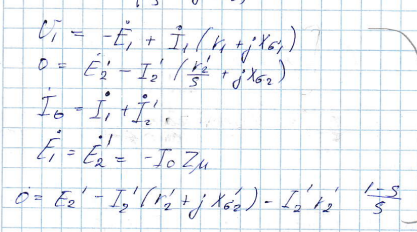 U̇₁ = -Ė₁ + İ₁ (r₁ + jxσ₁)
0 = Ė₂' - I₂' (r₂'/s + jxσ₂)
İ₀ = İ₁ + İ₂'
Ė₁ = Ė₂' = -I₀ Zμ
0 = E₂' - I₂' (r₂' + jx'σ₂) - I₂' r₂' (1-s)/s